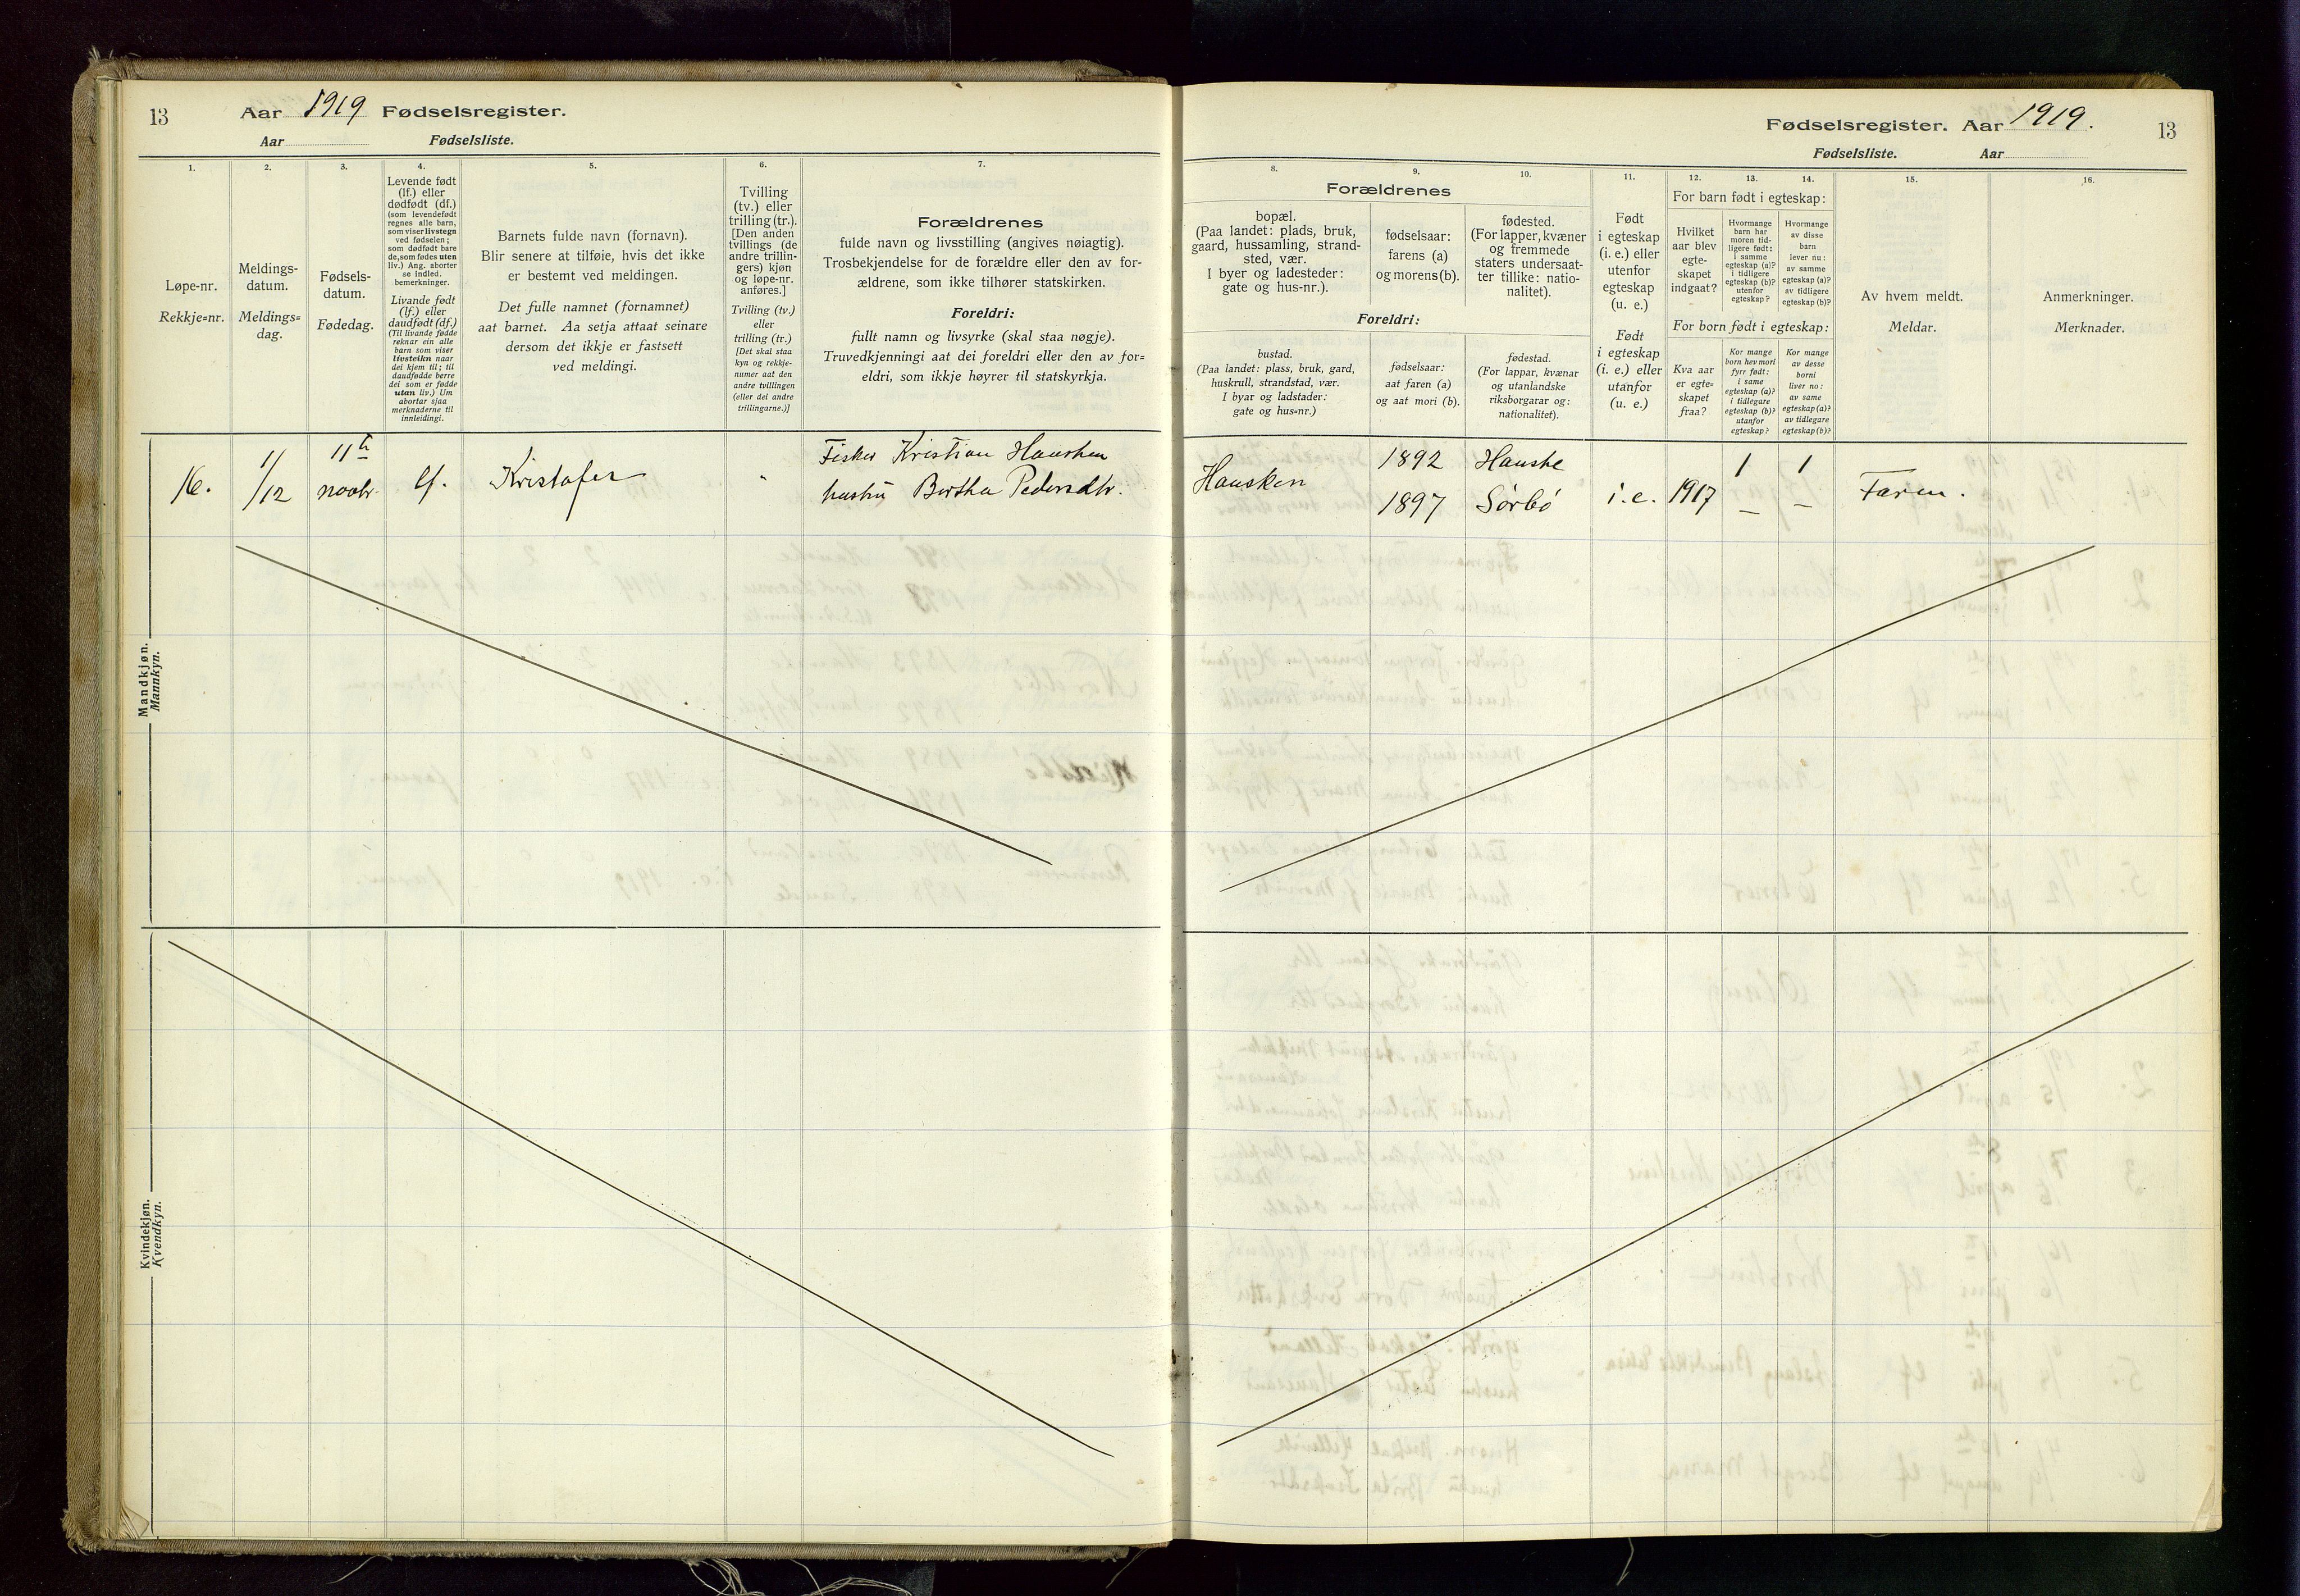 13 Aar 1919 Fødselsregister.
Aar Fødselsliste.
1.
2.
3.
4.
5.
6.
7.
Løpe-nr.
Rekkje=nr.
Meldings-
datum.
Meldings=
dag.
Fødsels-
datum.
Fødedag.
Levende født
(lf.) eller
dødfødt (df.)
(som levendefødt
regnes alle barn,
som viser livstegn
ved fødselen;
som dødfødt bare
de, som fødes uten
liv.) Ang. aborter
se indled.
bemerkninger.
Livande født
(lf.) eller
daudfødt (df.)
(Til livande fødde
reknar ein alle
barn som viser
livsteikn naar
dei kjem til; til
daudfødde berre
dei som er fødde
utan liv.) Um
abortar sjaa
merknaderne til
innleidingi.
Barnets fulde navn (fornavn).
Blir senere at tilføie, hvis det ikke
er bestemt ved meldingen.
Det fulle namnet (fornamnet)
aat barnet. Aa setja attaat seinare
dersom det ikkje er fastsett
ved meldingi.
Tvilling
(tv.) eller
trilling (tr.).
[Den anden
tvillings (de
andre trillin-
gers) kjøn
og løpe-nr.
anføres.]
Tvilling (tv.)
eller
trilling (tr.)
[Det skal staa
kyn og rekkje-
numer aat den
andre tvillingen
(eller dei andre
trillingarne.)]
Forældrenes
fulde navn og livsstilling (angives nøiagtig).
Trosbekjendelse for de forældre eller den av for-
ældrene, som ikke tilhører statskirken.
Foreldri:
fullt namn og livsyrke (skal staa nøgje).
Truvedkjenningi aat dei foreldri eller den av for=
eldri, som ikkje høyrer til statskyrkja.
Mandkjøn.
Mannkyn.
16.
1/12
11te
novbr.
lf.
Kristofer
"
Fisker Kristian Hausken
hustru Bertha Pedersdtr.
Kvindekjøn.
Kvendkyn.
Fødselsregister. Aar 1919. 13
Fødselsliste. Aar
8.
9.
10.
11.
12.
13.
14.
15.
16.
Forældrenes
bopæl.
(Paa landet: plads, bruk,
gaard, hussamling, strand-
sted, vær.
I byer og ladesteder:
gate og hus-nr.).
fødselsaar:
farens (a)
og morens (b).
fødested.
(For lapper, kvæner
og fremmede
staters undersaat-
ter tillike: natio-
nalitet).
Foreldri:
bustad.
(Paa landet: plass, bruk, gard,
huskrull, strandstad, vær.
I byar og ladstader:
gate og hus=nr.)
fødselsaar:
aat faren (a)
og aat mori (b).
fødestad.
(For lappar, kvænar
og utanlandske
riksborgarar og:
nationalitet).
Født
i egteskap
(i. e.) eller
utenfor
egteskap
(u. e.)
Født
i egteskap
(i. e.) eller
utanfor
(u. e.)
For barn født i egteskap:
Hvilket
aar blev
egte-
skapet
indgaat?
Hvormange
barn har
moren tid-
ligere født:
i samme
egteskap (a)?
i tidligere
egteskap (b)?
utenfor
egteskap?
Hvormange
av disse
barn
lever nu:
av samme
egteskap (a)?
av tidligere
egteskap (b)?
For born født i egteskap:
Kva aar
er egte=
skapet
fraa?
Kor mange
born hev mori
fyrr født:
i same
egteskap (a)?
i tidlegare
egteskap (b)?
utanfor
egteskap?
Kor mange
av desse
borni
liver no:
av same
egteskap (a)?
av tidlegare
egteskap (b)?
Av hvem meldt.
Meldar.
Anmerkninger.
Merknader.
Hausken
1892
1897
Hauske
Sørbø
i.e.
1917
1
–
1
–
Faren.